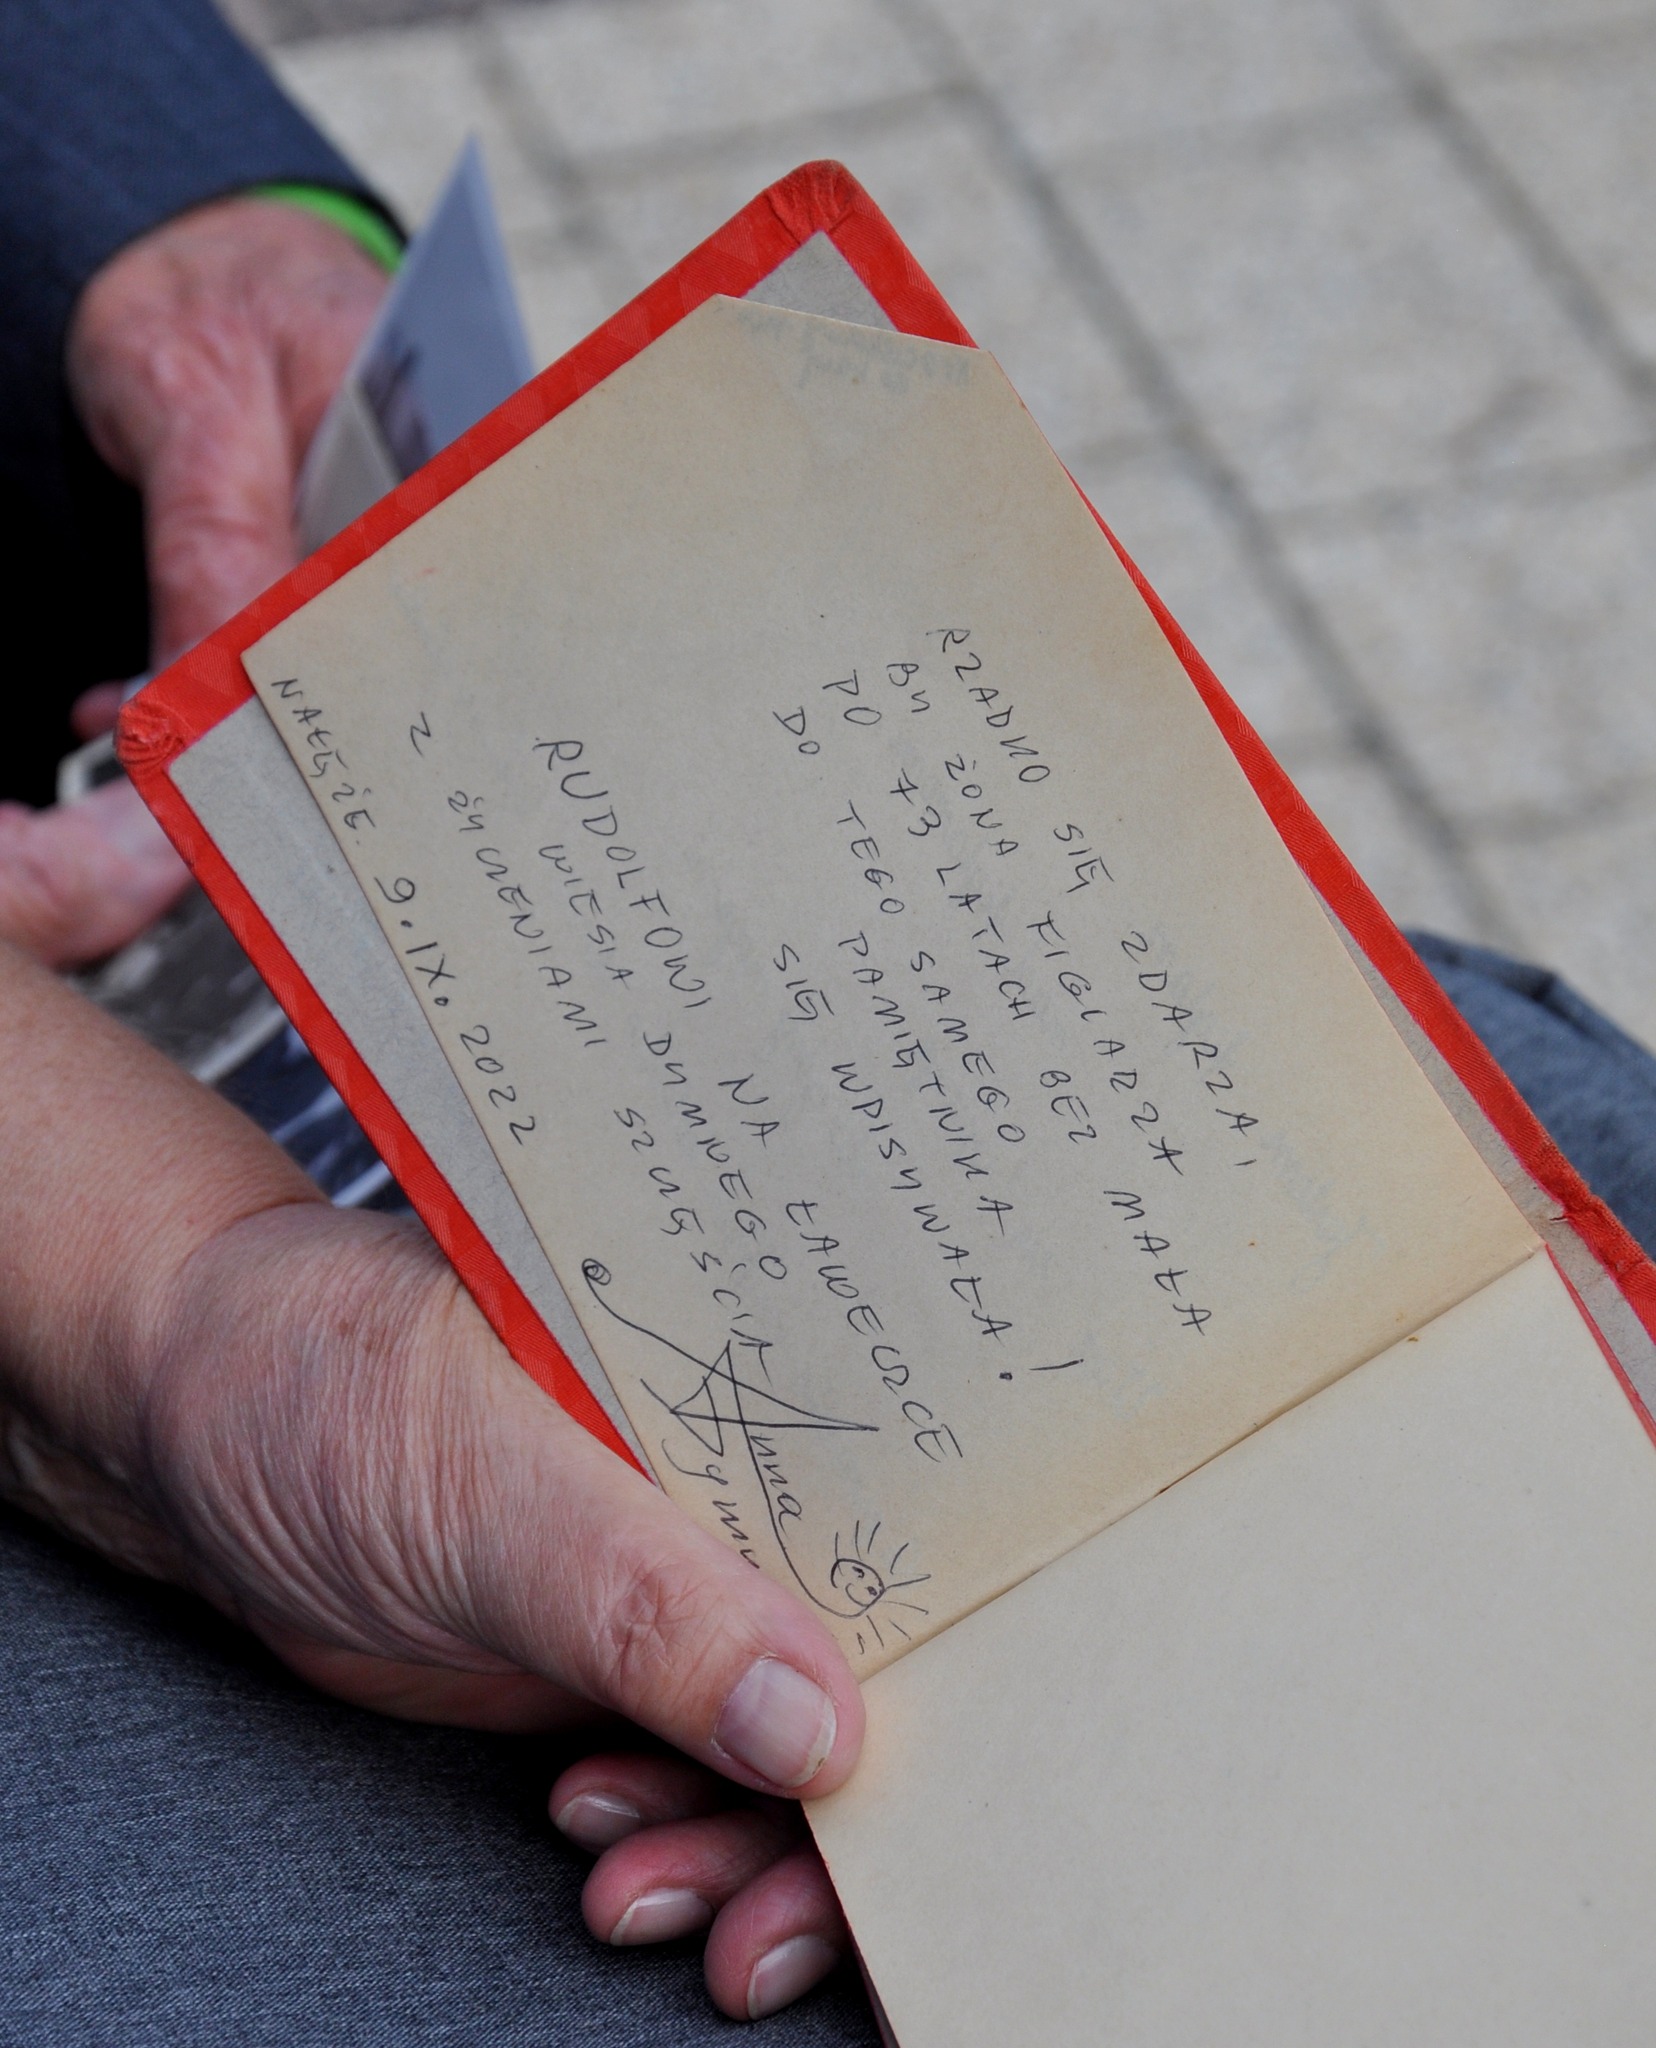 RZADKO SIĘ ZDARZA,
BY ŻONA FIGLARZA
PO 73 LATACH BEZ MAŁA
DO TEGO SAMEGO
PAMIĘTNIKA
SIĘ WPISYWAŁA!
RUDOLFOWI NA ŁAWECZCE
WIESIA DYMNEGO
Z ŻYCZENIAMI SZCZĘŚCIA
Anna
NAŁĘŻE. 9.IX.2022